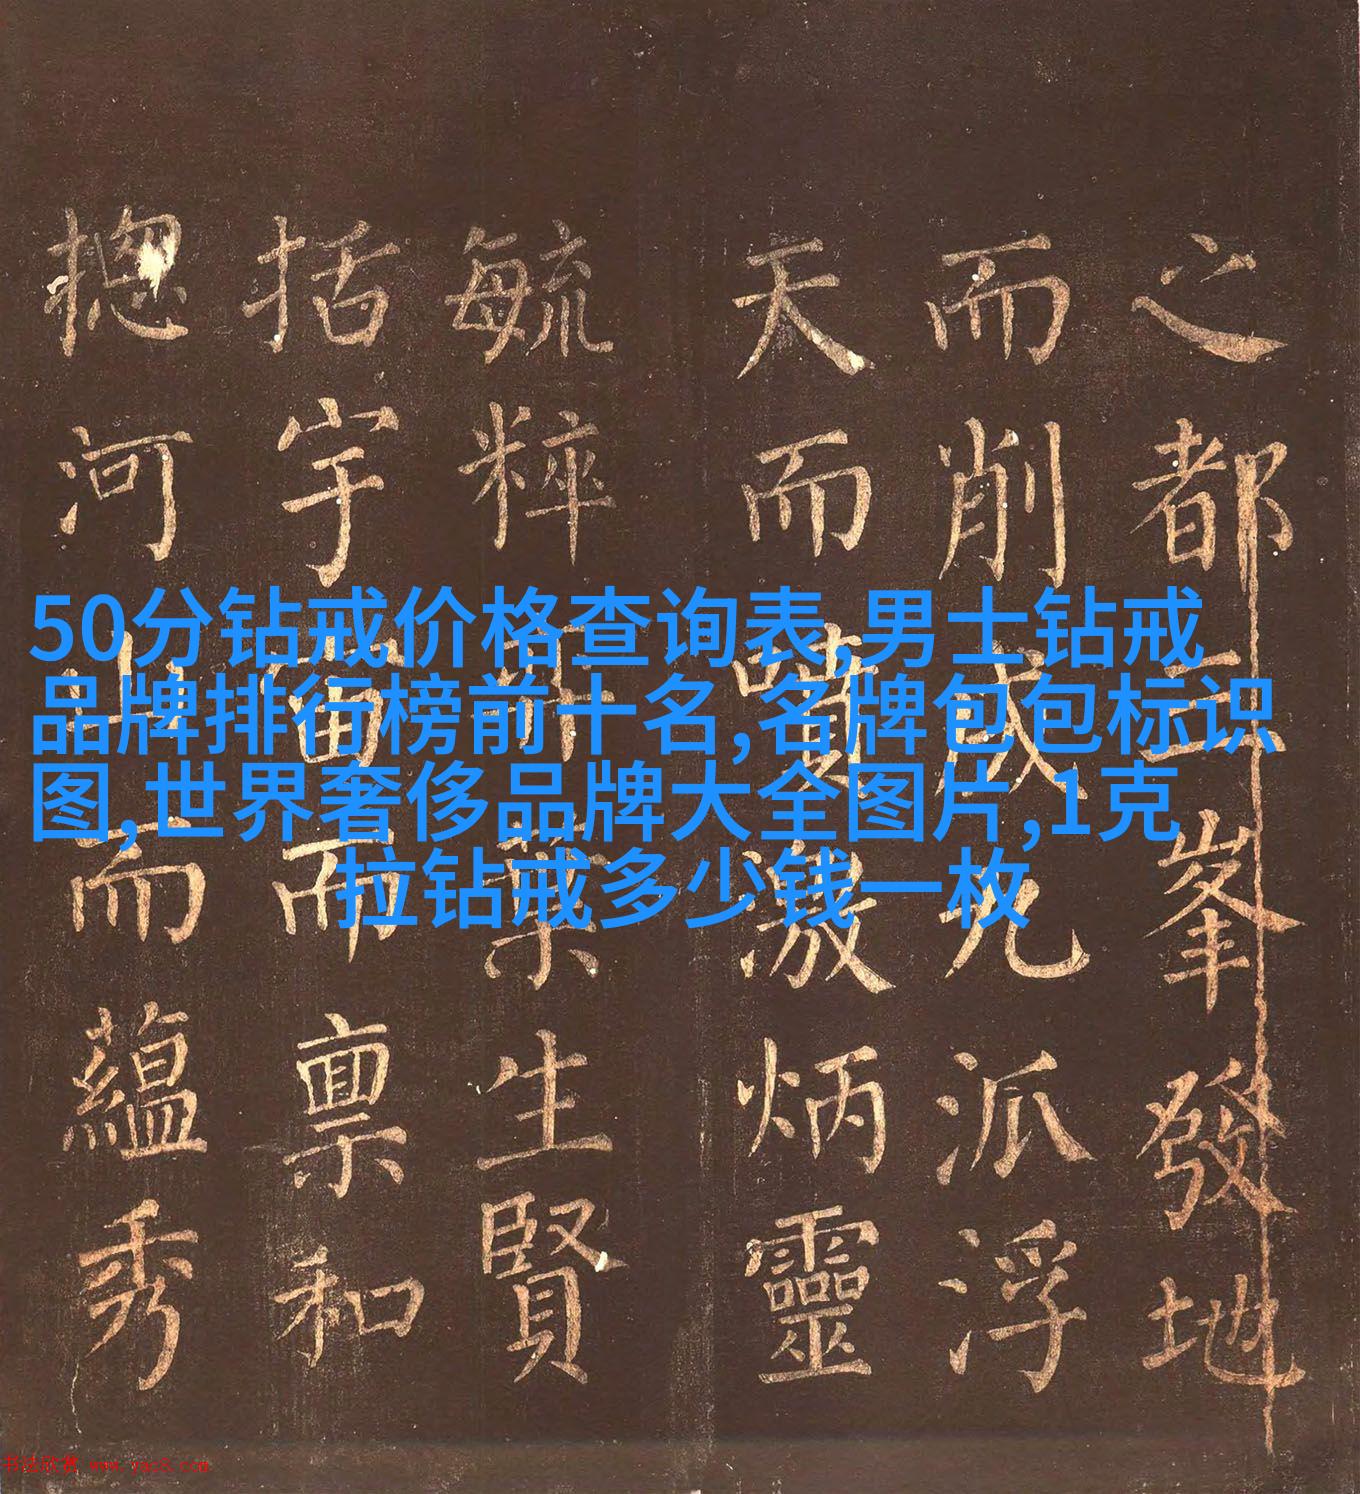 50分钻戒价格查询表,男士钻戒
品牌排行榜前十名,名牌包包标识
图,世界奢侈品牌大全图片,1克
拉钻戒多少钱一枚
之都三峯發地
而削成九派浮
天而噴激炳靈
毓粹葉生賢
括宇宙而禀和
揔河山而蘊秀
书法欣赏 www.yac8.com